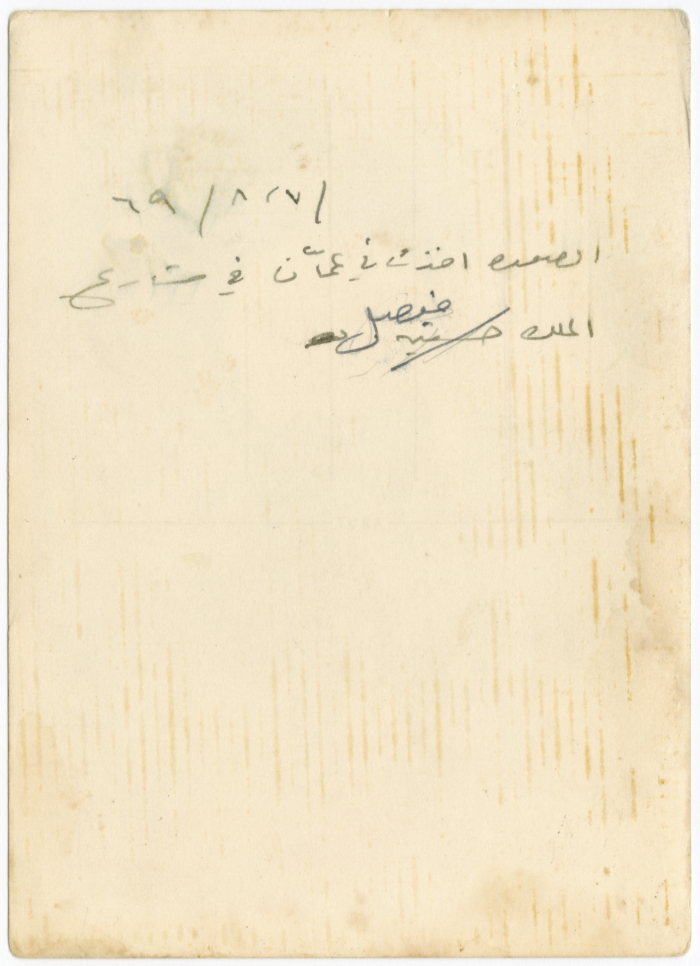 ٦٩/٨/٢٧/
الصوره اخذت في عمّان في شارع
الملك حسين فيصل